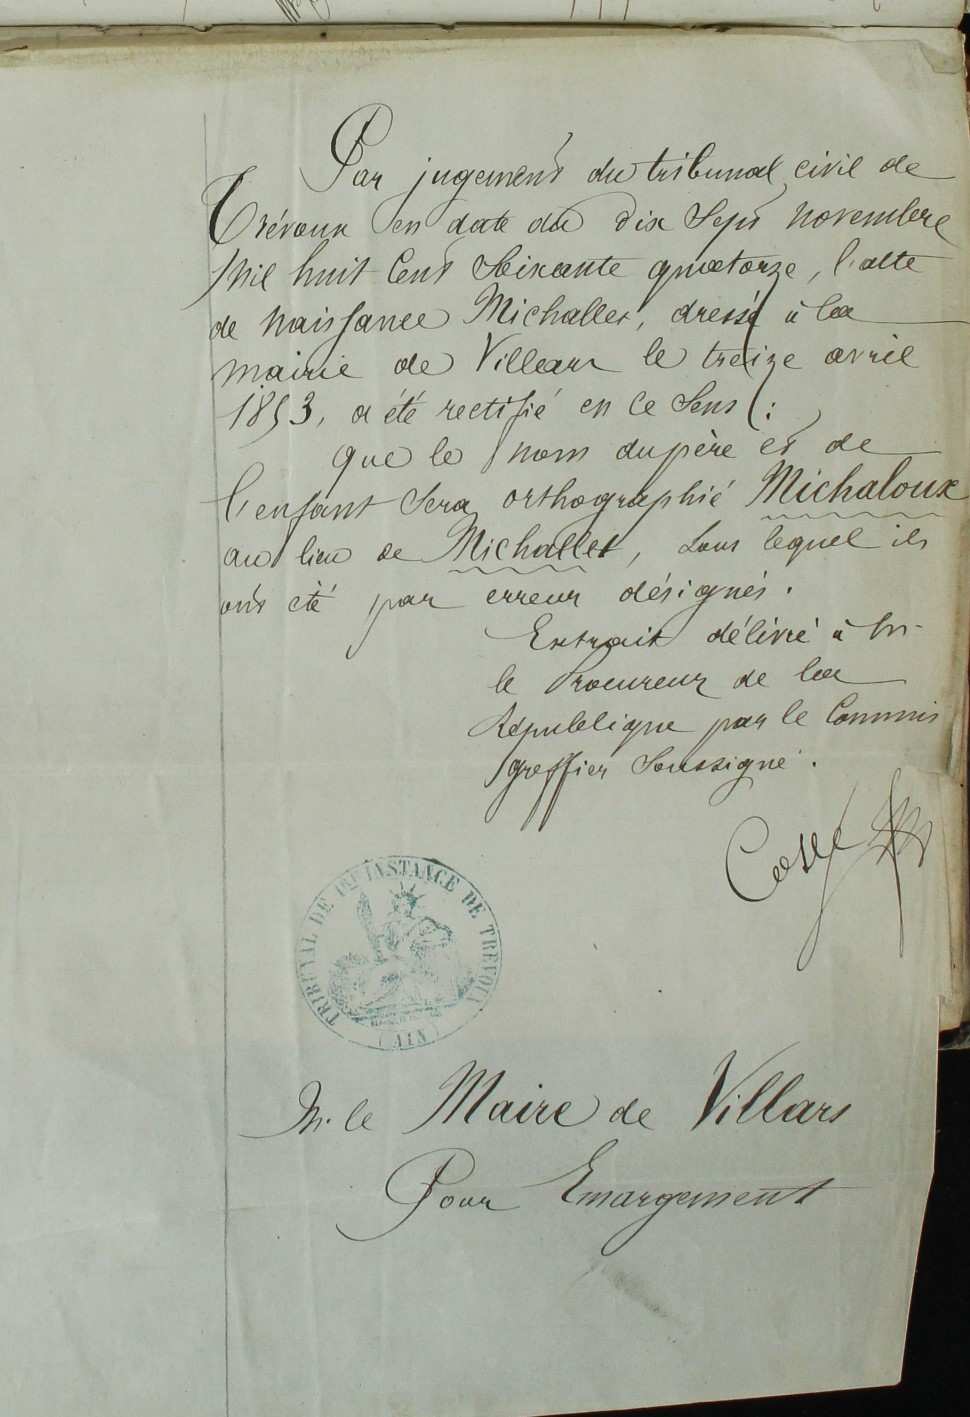 Par jugement du tribunal civil de
Trévoux en date du dix sept novembre
Mil huit cent soixante quatorze, l'acte
de naissance Michallet, dressé à la
mairie de Villars le treize avril
1853, a été rectifié en ce sens :
que le nom du père et de
l'enfant sera orthographié Michaloux
au lieu de Michallet, sous lequel ils
ont été par erreur désignés.
Extrait délivré à Mr
le Procureur de la
République par le Commis
greffier soussigné.
TRIBUNAL DE 1RE INSTANCE DE TREVOUX
(AIN)
M. le Maire de Villars
Pour Emargement